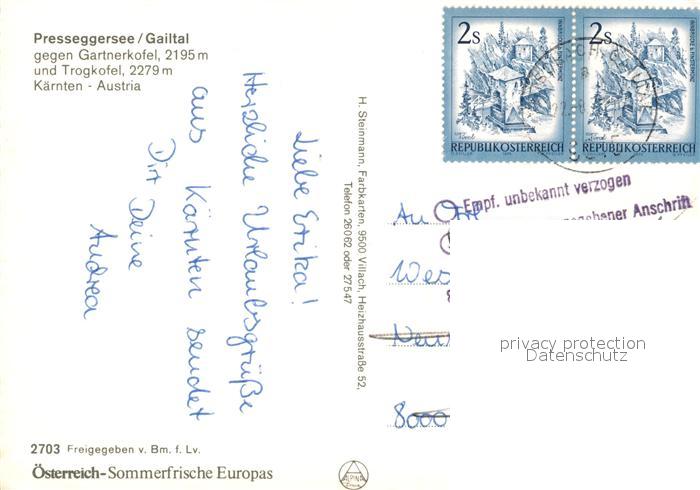 Presseggersee/Gailtal
gegen Gartnerkofel, 2195 m
und Trogkofel, 2279 m
Kärnten - Austria
Liebe Erika!
Herzliche Urlaubsgrüße
aus Kärnten sendet
Dir Deine
Andrea
H. Steinmann, Farbkarten, 9500 Villach, Heizhausstraße 52,
Telefon 26062 oder 27547
2s
REPUBLIK ÖSTERREICH
2s
REPUBLIK ÖSTERREICH
Empf. unbekannt verzogen
gebener Anschrift
An
Wes
Neu
8000
privacy protection
Datenschutz
2703 Freigegeben v. Bm. f. Lv.
Österreich-Sommerfrische Europas
ALPINA